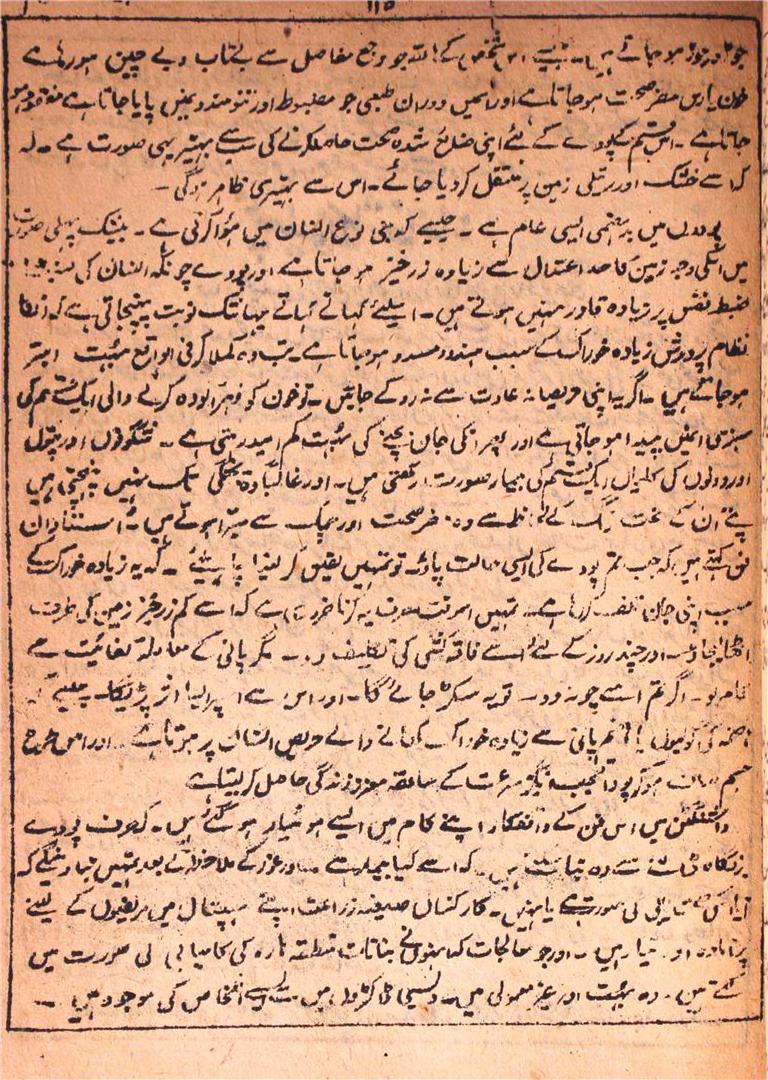 ۱۱۵
جوڑ اور توڑ ہو جاتے ہیں۔ جیسے اس شخص کے لئے جو وجع مفاصل سے بیتاب و بے چین ہو رہا ہے
خون یا رس مضر صحت ہو جاتا ہے اور اسمیں دوران طبعی جو مضبوط اور تنومند ونمیں پایا جاتا ہے مفقود ہو
جاتا ہے۔ اس قسم کے پودے کے لئے اپنی ضائع شدہ صحت حاصل کرنے کی سب سے بہتر یہی صورت ہے۔ کہ
کہ اسے خشک اور ریتلی زمین پر منتقل کر دیا جائے۔ اس سے بہتری ظاہر ہوگی۔
پودوں میں بدہضمی ایسی عام ہے۔ جیسے کہ بنی نوع انسان میں ہوا کرتی ہے۔ بیشک پہلی صورت
میں اسکی وجہ زمین کا حد اعتدال سے زیادہ زرخیز ہو جاتا ہے اور پودے چونکہ انسان کی نسبت
ضبط نفس پر زیادہ قادر نہیں ہوتے ہیں۔ اسلئے کہاتے کہاتے یہانتک نوبت پہنچ جاتی ہے کہ انکا
نظام پرورش زیادہ خوراک کے سبب مسدود ہو جاتا ہے۔ تب وہ کملا کر فی الواقع بہت ابتر
ہو جاتے ہیں۔ اگر یہ اپنی حریصانہ عادت سے نہ روکے جائیں۔ تو خون کو زہر آلودہ کرنے والی ایک قسم کی
سبزی انمیں پیدا ہو جاتی ہے اور پھر انکی جان بچنے کی بہت کم امید رہتی ہے۔ شگوفوں اور پتوں
اور دونوں کی کلیاں ایک قسم کی بیمار صورت رکھتی ہیں۔ اور غالباً وہ پختگی تک نہیں پہنچتی ہیں
پتے ان کے سخت رنگ کے لحاظ سے وہ صحت اور چمک سے مبرا ہوتے ہیں۔ استادان
فن کہتے ہیں کہ جب تم پودے کی ایسی حالت پاؤ۔ تو تمہیں یقین کر لینا چاہئیے۔ کہ یہ زیادہ خوراک کے
سبب اپنی جان تلف کر رہا ہے۔ تمہیں اسوقت صرف یہ کرنا ضروری ہے کہ اسے کم زرخیز زمین کی طرف
اٹھا لیجاؤ۔ اور چند روز کے لئے اسے فاقہ کشی کی تکلیف دو۔ مگر پانی کے معاملہ کفائیت سے
کام لو۔ اگر تم اسے چونہ دو۔ تو یہ سکڑ جائے گا۔ اور اس سے اسپر ایسا اثر پڑیگا۔ جیسے کہ
ہاضمہ کی گولیوں یا گرم پانی سے زیادہ خوراک کہانے والے حریص انسان پر ہوتا ہے۔ اور اس طرح
جسم صاف ہو کر پودا تعجب انگیز سرعت کے ساتھ معزز زندگی حاصل کر لیتا ہے
واشنگٹن میں اس فن کے واقفکار اپنے کام میں ایسے ہوشیار ہو گئے ہیں۔ کہ صرف پودے
پر نگاہ ڈالنے سے وہ بتا سکتے ہیں۔ کہ اسے کیا بیماری ہے۔ اور غور کے ملاحظہ کے بعد تمہیں بتا دینگے کہ
آیا اس کی صورت ہے یا نہیں۔ کارکنان صیغہ زراعت اپنے ہسپتال میں مریضوں کے لینے
پر آمادہ اور تیار ہیں۔ اور جو معالجات کہ انہوں نے نباتات منطقہ حارہ کی کامیابی کی صورت میں
کئے ہیں۔ وہ بہت اور غیر معمولی ہیں۔ ویسی ہی ڈاکٹروں میں ایسے اشخاص کی موجود ہیں۔